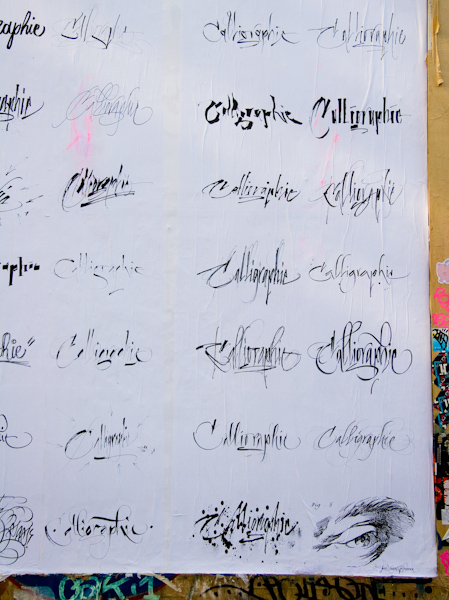 raphie Calligraphie Calligraphie Calligraphie
graphie Calligraphie Calligraphie Calligraphie
Calligraphie Calligraphie Calligraphie
raphie Calligraphie Calligraphie Calligraphie
phie" Calligraphie Calligraphie Calligraphie
Calligraphie Calligraphie Calligraphie
Calligraphie Calligraphie